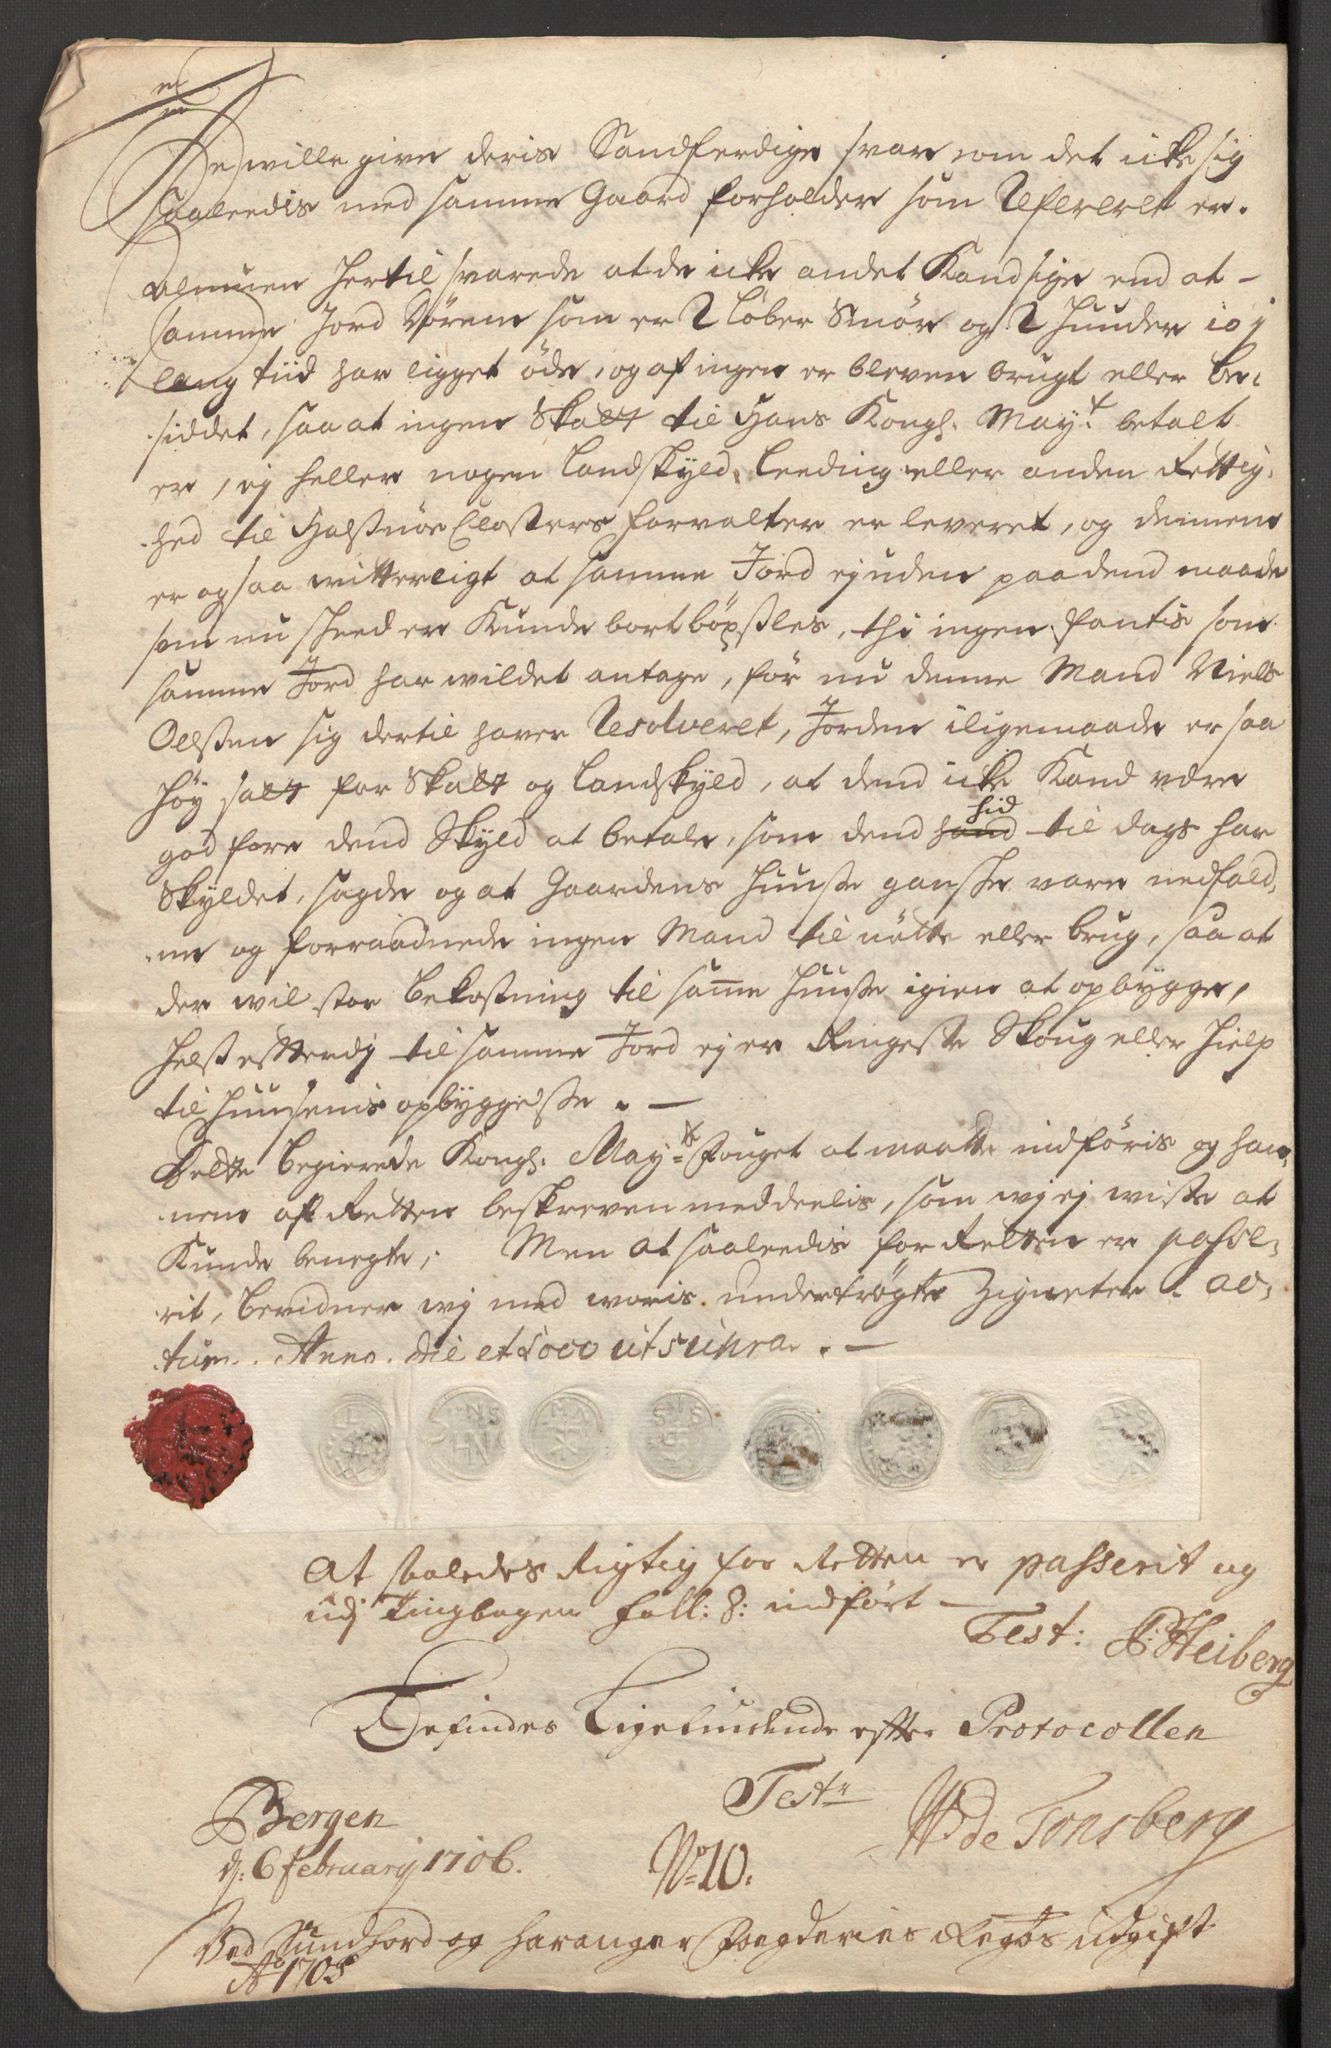 De wille give deris Sandferdige svar om det icke sig
saaledis med samme Gaard forholder som Refereret er.
Almuen hertil svarede at de icke andet Kand sige end at
samme Jord som er 2 Løber Smør og 2 Huuder i
lang tiid har ligget øde, og af ingen er bleven brugt eller be-
siddet, saa at ingen Skatt til Hans Kongl. Mayt. betalt
er, ej heller nogen Landskyld, Leeding eller anden Rettig-
hed til Halsnøe Closters forvalter er leveret, og dennem
er ogsaa witterligt at samme Jord ej uden paa dend maade
som nu skeed er Kunde bortbøxsles, thi ingen fantis som
samme Jord har wildet antage, før nu denne Mand Niels
Olssen sig dertil haver Resolveret, Jorden iligemaade er saa
høy satt for Skatt og Landskyld, at dend icke Kand være
god fore dend Skyld at betale, som dend hid til dags har
Skyldet, sagde og at Gaardens Huusse gansche vare nedfald-
ne og forraadnede ingen Mand til nøtte eller brug, saa at
der wil stor bekostning til same Huusse igien at opbygge,
helst efterdj til samme Jord ej er Ringeste Skoug eller Hielp
til Huusenis opbyggelsse. —
Dette begierede Kongl. Mayts Fouget at maatte indføris og han-
nem af Retten beskreven meddeelis, som wj ej wiste at
Kunde benegte; Men at saaleedis for Retten er passe-
rit, bevidner wj med woris undertrøgte Zigneter. Ac-
tum Anno die et loco ut supra. —
At saaledes Rigtig for Retten er passerit og
udj Tingbogen foll: 8: indført —
Test: Heiberg
Befindes Ligeludende efter Protocollen
Test
WDe Tonsberg
Bergen
dj: 6 februarij 1706.
No 10.
Ved Sundhord og Haranger Fogderies Regnbs udgift
Ao 1705